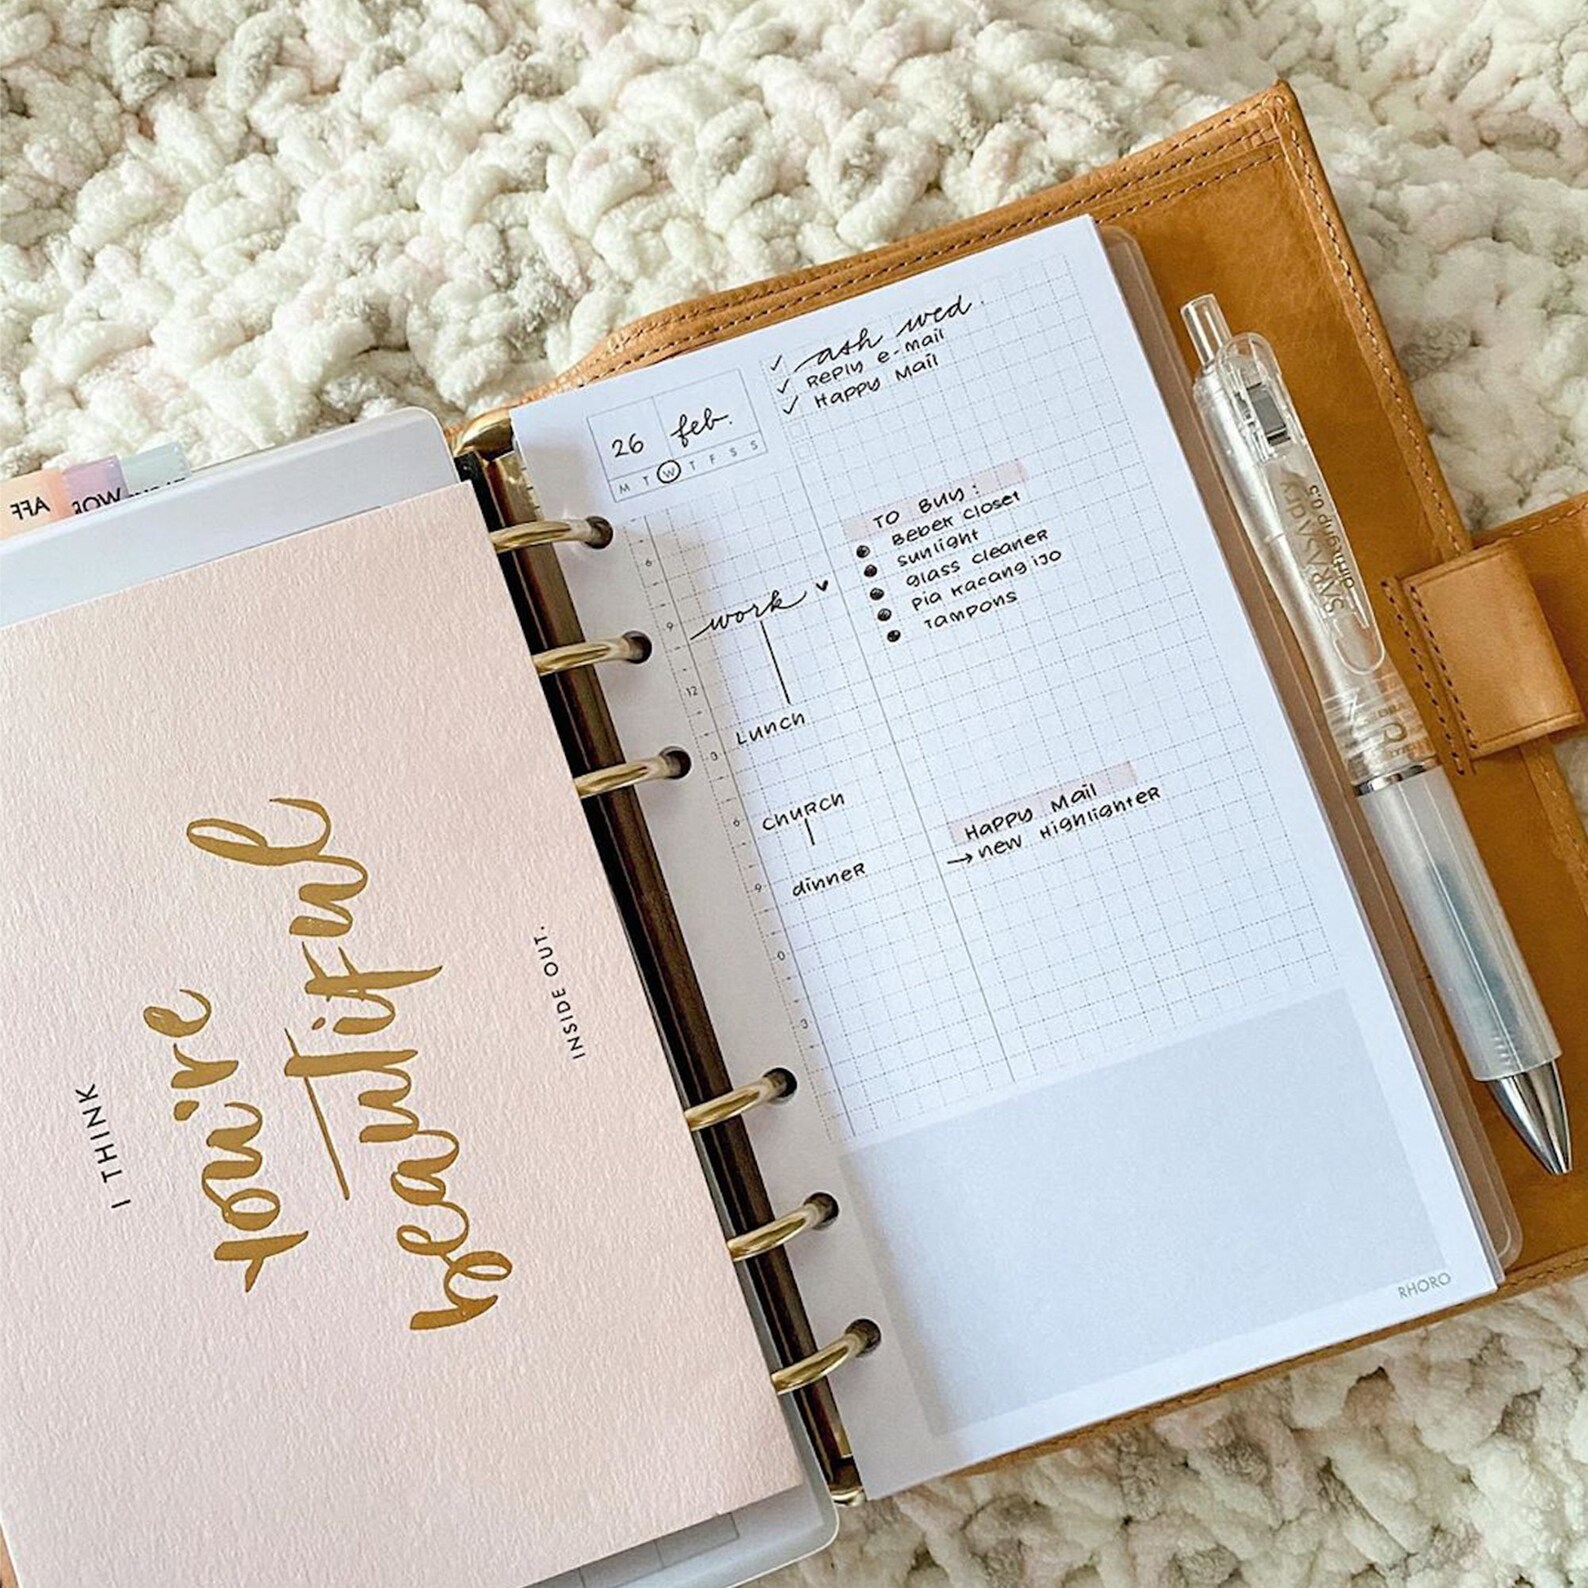 AFF
WOR
I THINK
you're
beautiful
INSIDE OUT.
26 feb.
M T W T F S S
✓ ash wed.
✓ Reply e-mail
✓ Happy Mail
6
9
work ♥
12
Lunch
3
6
Church
9
dinner
0
3
TO BUY:
● Beber closet
● sunlight
● glass cleaner
● Pia Kacang ijo
● Tampons
Happy Mail
→ new Highlighter
RHORO
SARASA dry
airfit grip 0.5